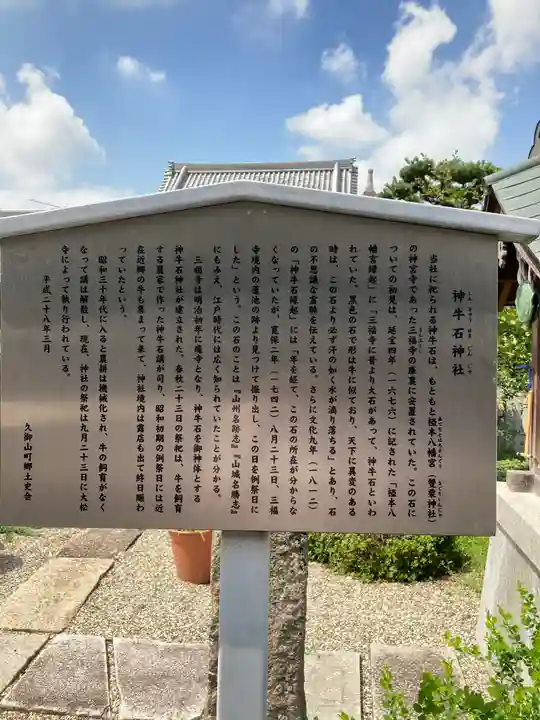 神牛石神社
当社に祀られる神牛石は、もともと椏本八幡宮(雙栗神社)
の神宮寺であった三福寺の庫裏に安置されていた。この石に
ついての初見は、延宝四年(一六七六)に記された「椏本八
幡宮縁起」に「三福寺に昔より大石があって、神牛石といわ
れていた。黒色の石で形は牛に似ており、天下に異変のある
時は、この石より必ず汗の如く水が滴り落ちる」とあり、石
の不思議な霊験を伝えている。さらに文化九年(一八一二)
の「神牛石縁起」には「年を経て、この石の所在が分からな
くなっていたが、寛保二年(一七四二)八月二十三日、三福
寺境内の蓮池の畔より見つけて掘り出し、この日を例祭日に
した」という。この石のことは『山州名跡志』『山城名勝志』
にもみえ、江戸時代には広く知られていたことが分かる。
三福寺は明治初年に廃寺となり、神牛石を御神体とする
神牛石神社が建立された。春秋二十三日の祭祀は、牛を飼育
する農家で作った神牛石講が司り、昭和初期の例祭日には近
在近郷の牛も集まって来て、神社境内は露店も出て終日賑わ
っていたという。
昭和三十年代に入ると農耕は機械化され、牛の飼育がなく
なって講は解散し、現在、神社の祭祀は九月二十三日に大松
寺によって執り行われている。
平成二十八年三月
久御山町郷土史会